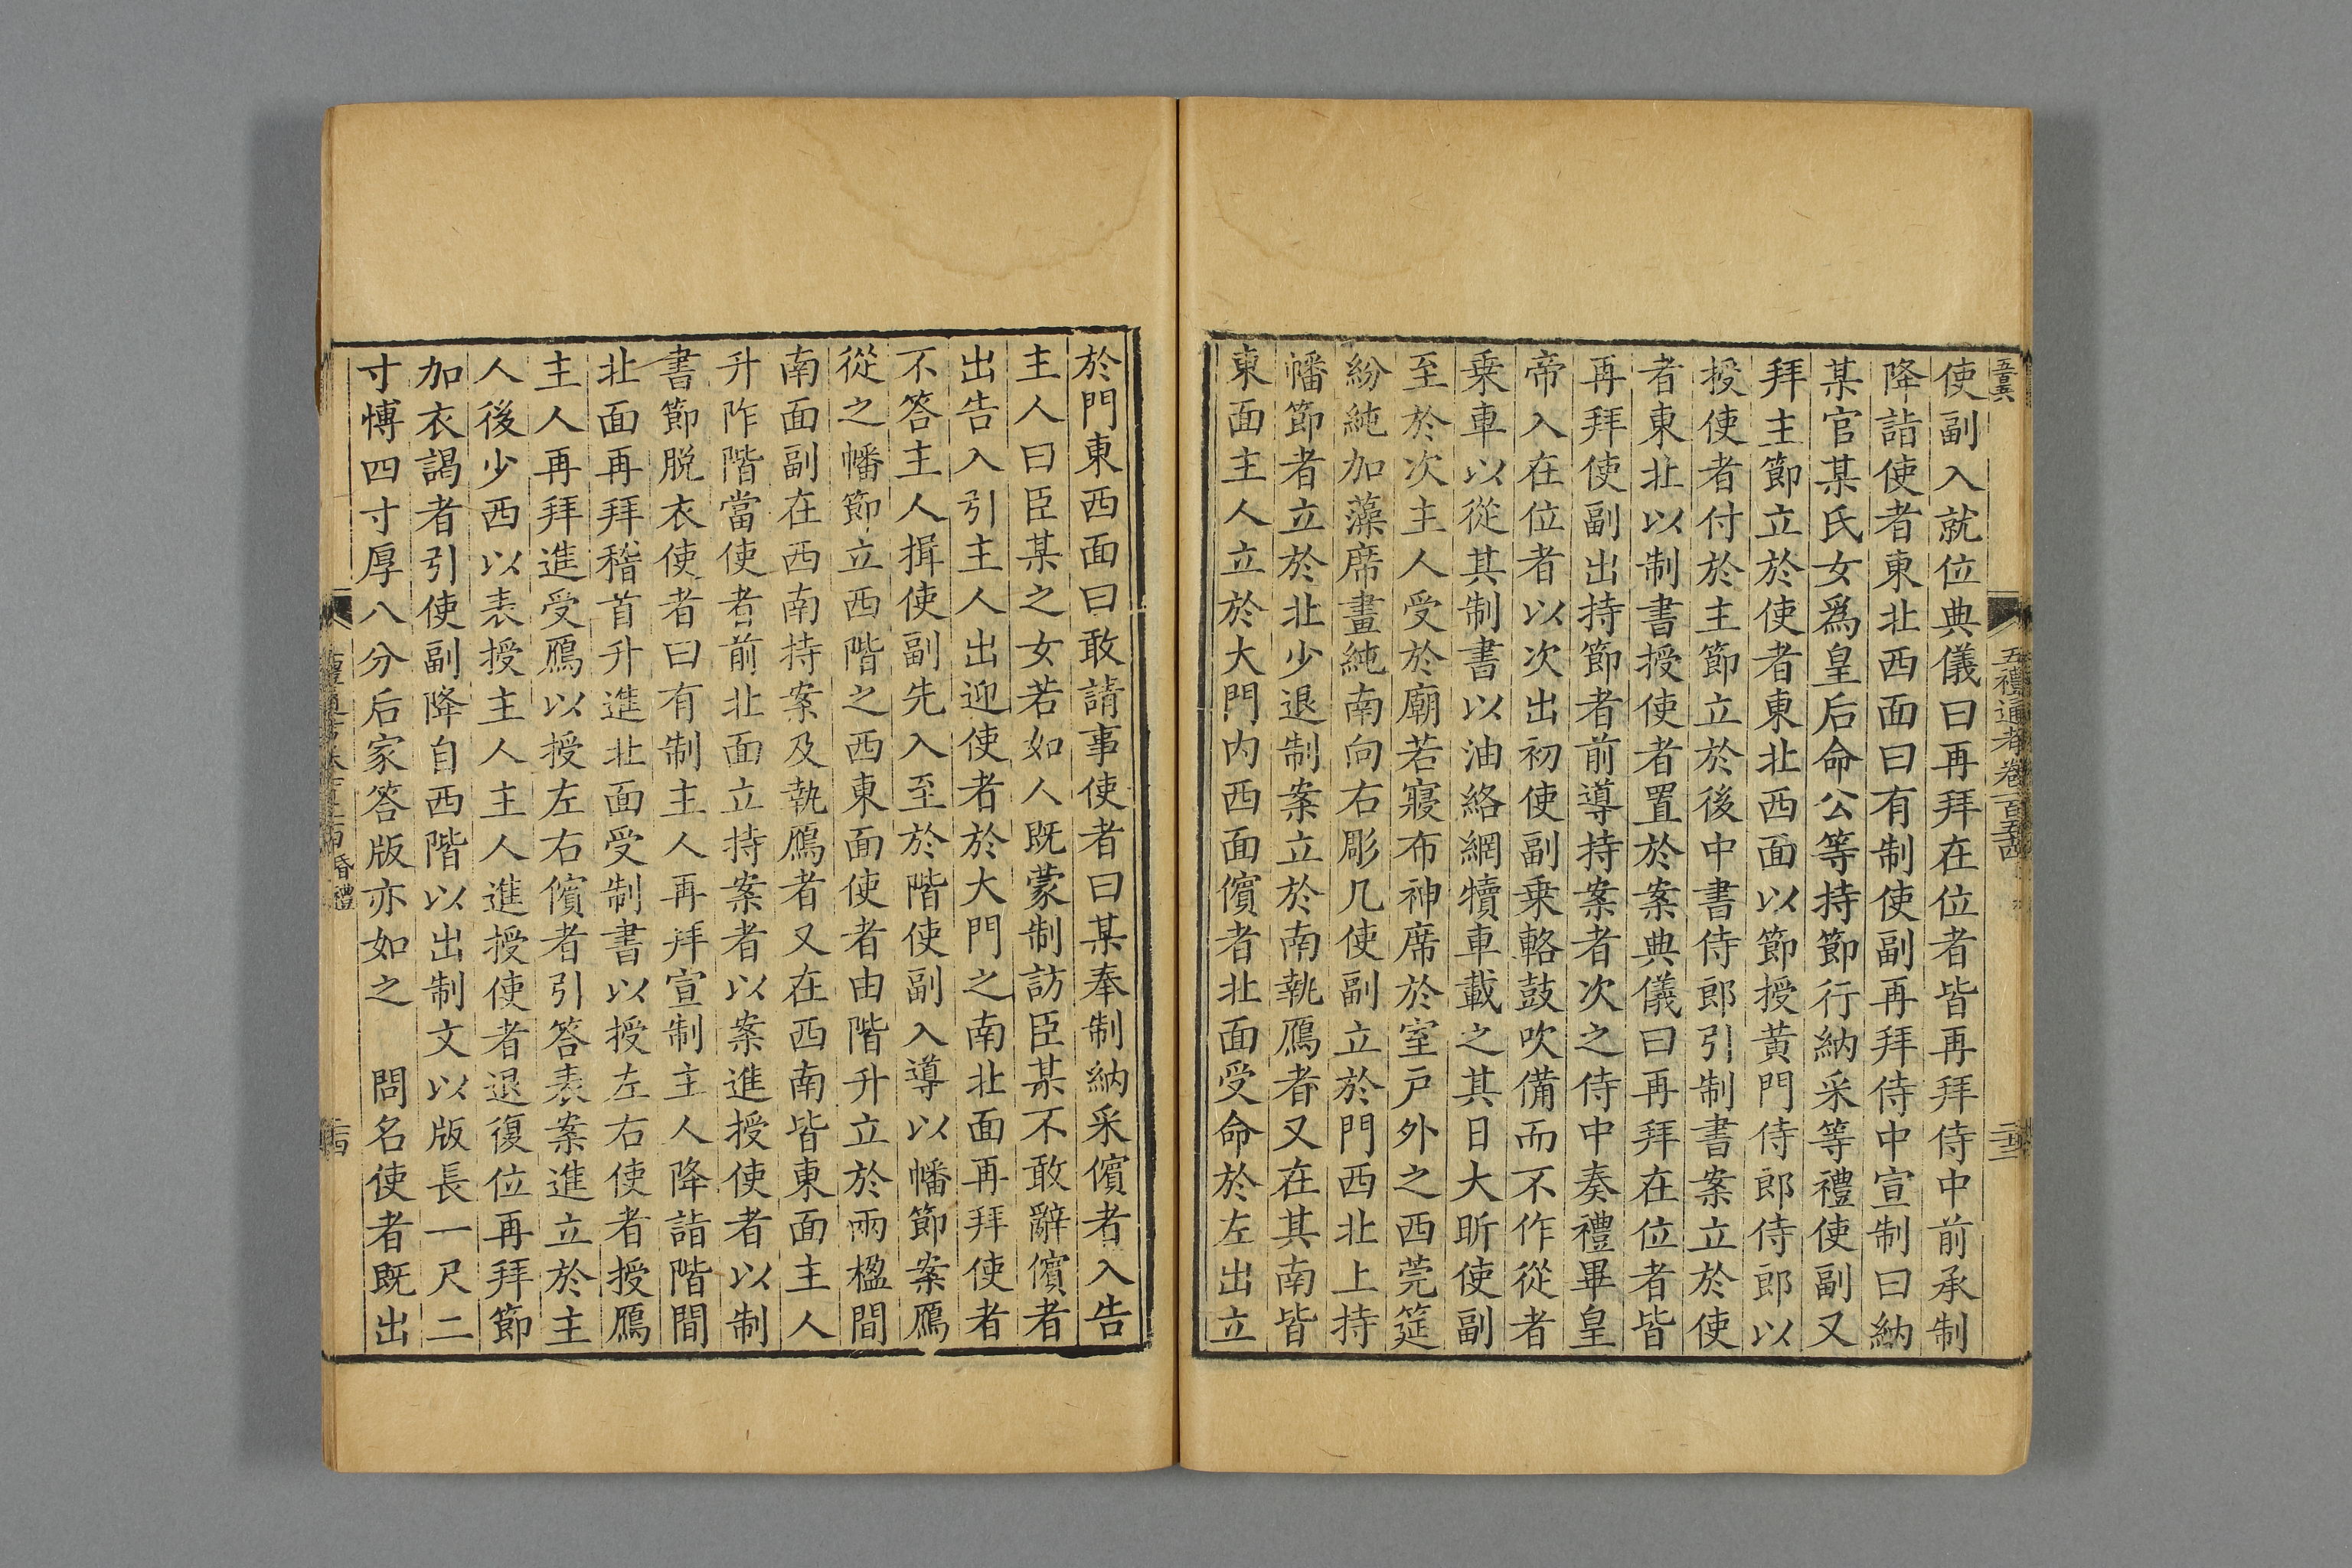 五禮通考卷一百五十四
使副入就位典儀曰再拜在位者皆再拜侍中前承制
降詣使者東北西面曰有制使副再拜侍中宣制曰納
某官某氏女爲皇后命公等持節行納采等禮使副又
拜主節立於使者東北西面以節授黄門侍郎侍郎以
授使者付於主節立於後中書侍郎引制書案立於使
者東北以制書授使者置於案典儀曰再拜在位者皆
再拜使副出持節者前導持案者次之侍中奏禮畢皇
帝入在位者以次出初使副乗輅鼓吹備而不作從者
乗車以從其制書以油絡網犢車載之其日大昕使副
至於次主人受於廟若寢布神席於室戶外之西莞筵
紛純加藻席畫純南向右彫几使副立於門西北上持
幡節者立於北少退制案立於南執鴈者又在其南皆
東面主人立於大門内西面儐者北面受命於左出立
於門東西面曰敢請事使者曰某奉制納采儐者入告
主人曰臣某之女若如人既蒙制訪臣某不敢辭儐者
出告入引主人出迎使者於大門之南北面再拜使者
不答主人揖使副先入至於階使副入導以幡節案鴈
從之幡節立西階之西東面使者由階升立於兩楹間
南面副在西南持案及執鴈者又在西南皆東面主人
升阼階當使者前北面立持案者以案進授使者以制
書節脱衣使者曰有制主人再拜宣制主人降詣階間
北面再拜稽首升進北面受制書以授左右使者授鴈
主人再拜進受鴈以授左右儐者引答表案進立於主
人後少西以表授主人主人進授使者退復位再拜節
加衣謁者引使副降自西階以出制文以版長一尺二
寸愽四寸厚八分后家答版亦如之　問名使者既出
婚禮